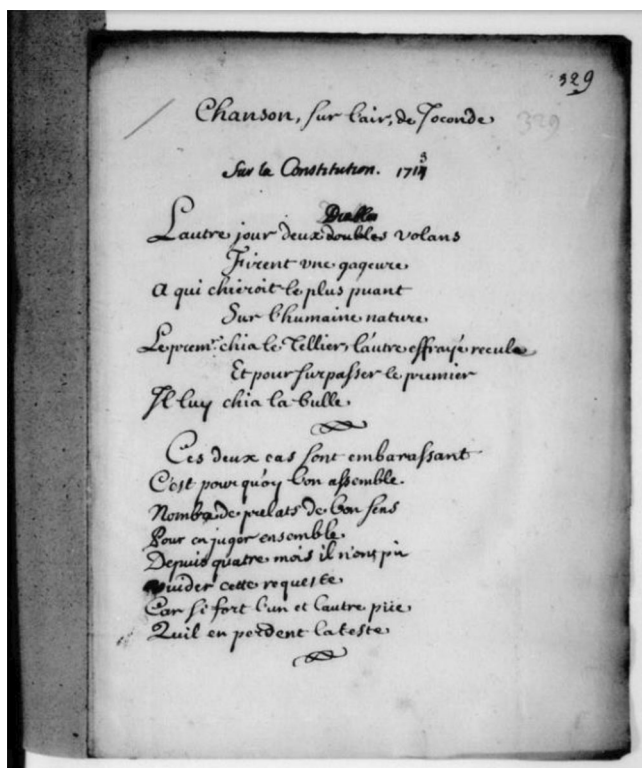 329
Chanson, sur l'air, de Joconde
329
Sur la Constitution. 1713
Diables
L'autre jour deux doubles volans
Firent vne gageure
A qui chieroit le plus puant
Sur l'humaine nature
Le prem.r chia le Tellier, l'autre effrayé recule
Et pour surpasser le premier
Il luy chia la bulle
Ces deux cas sont embarassant
C'est pourquoy l'on assemble
Nombre de prelats de bon sens
Pour en juger ensemble
Depuis quatre mois il n'ont pû
vuider cette requeste
Car si fort l'un et l'autre püe
Qu'il en perdent la teste